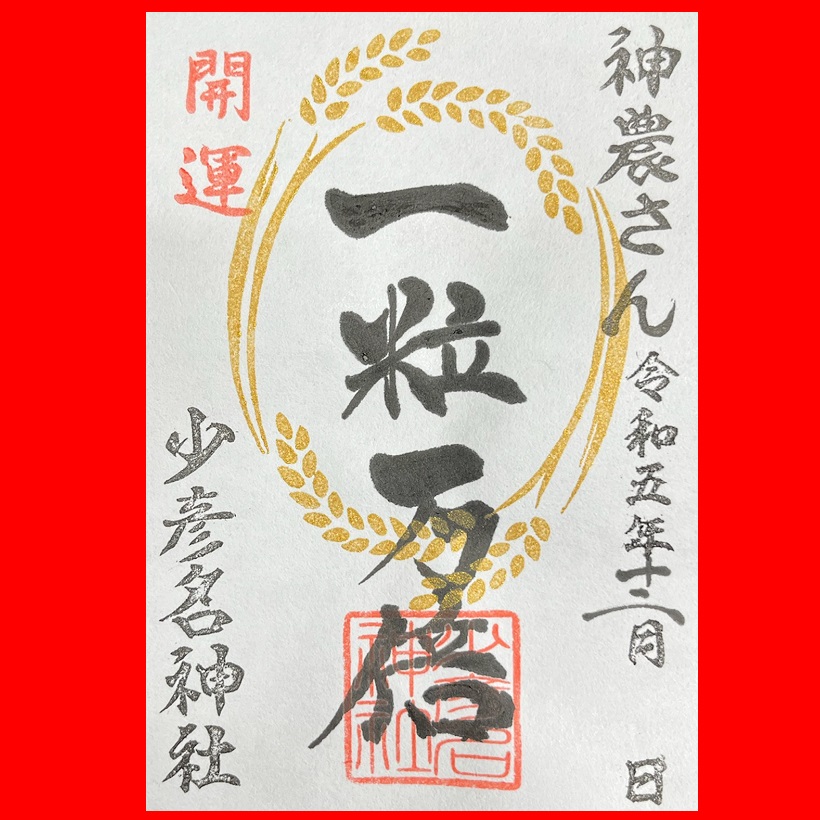 神農さん
令和五年十二月 日
一粒万倍
開運
少彦名神社
少彦名神社